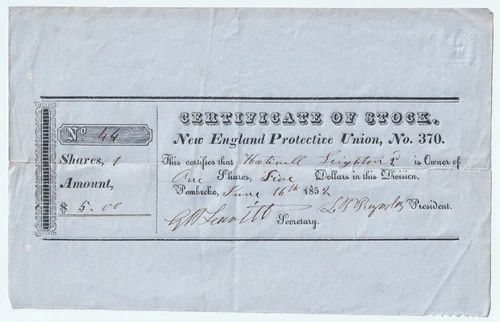 CERTIFICATE OF STOCK,
New England Protective Union, No. 370.
No 44
Shares, 1
Amount,
$ 5.00
This certifies that Hatwell Leighton is Owner of
One Shares, Five Dollars in this Division.
Pembroke, June 16th 1852
President.
Secretary.